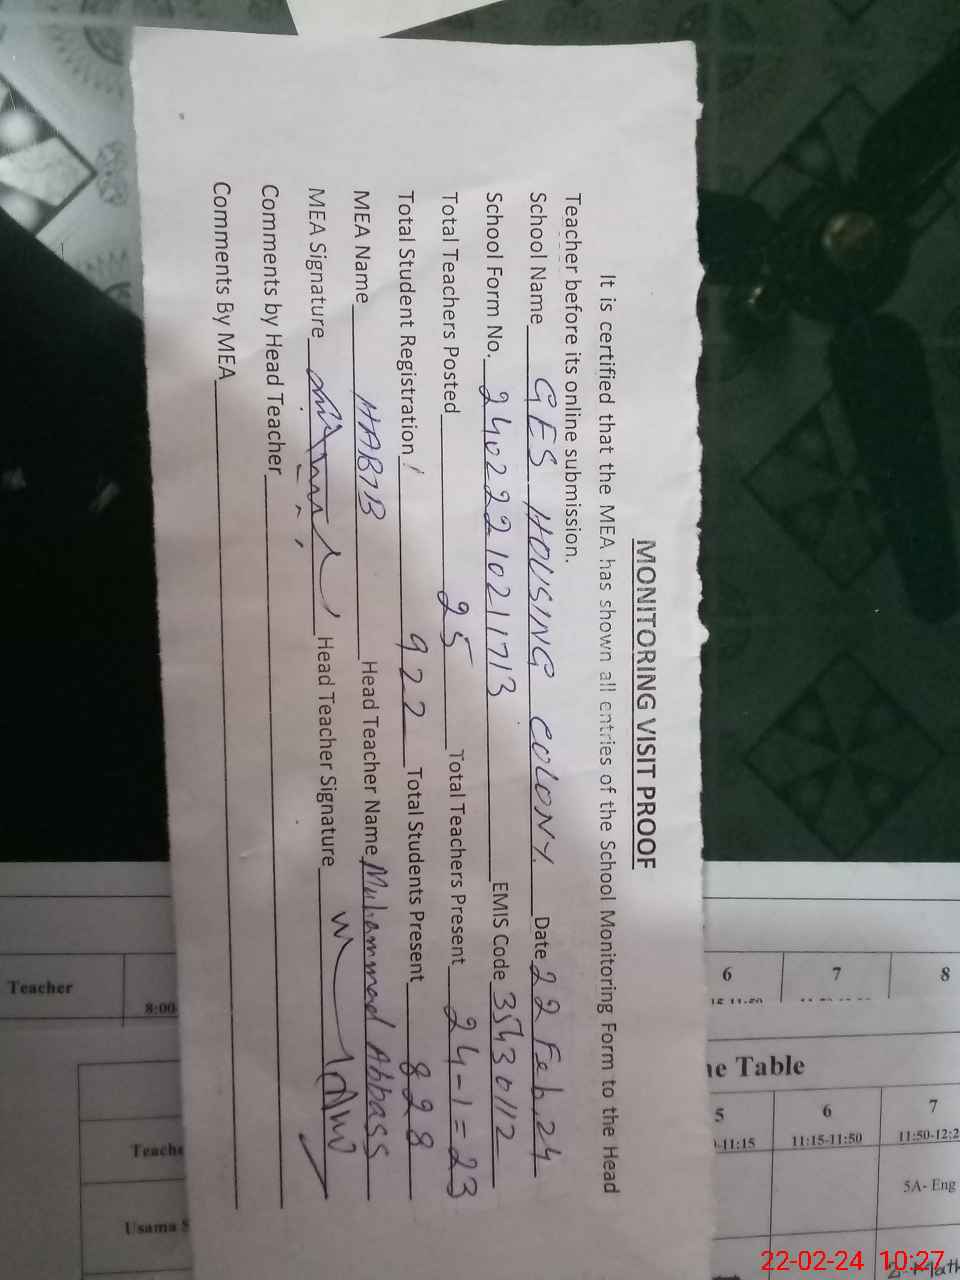 MONITORING VISIT PROOF
It is certified that the MEA has shown all entries of the School Monitoring Form to the Head
Teacher before its online submission.
School Name GES HOUSING COLONY. Date 22 Feb, 24
School Form No. 24022210211713 EMIS Code 35430112
Total Teachers Posted 25 Total Teachers Present 24-1=23
Total Student Registration 922 Total Students Present 828
MEA Name HABIB Head Teacher Name Muhammad Abbass
MEA Signature Head Teacher Signature
Comments by Head Teacher
Comments By MEA
6 7 8
Teacher 8:00
ne Table
5 6 7
-11:15 11:15-11:50 11:50-12:2
Teache
5A- Eng
Usama S
22-02-24 10:27